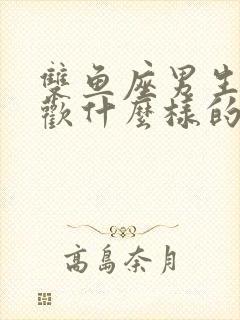 雙鱼座男生
歡什麼樣的
高島奈月